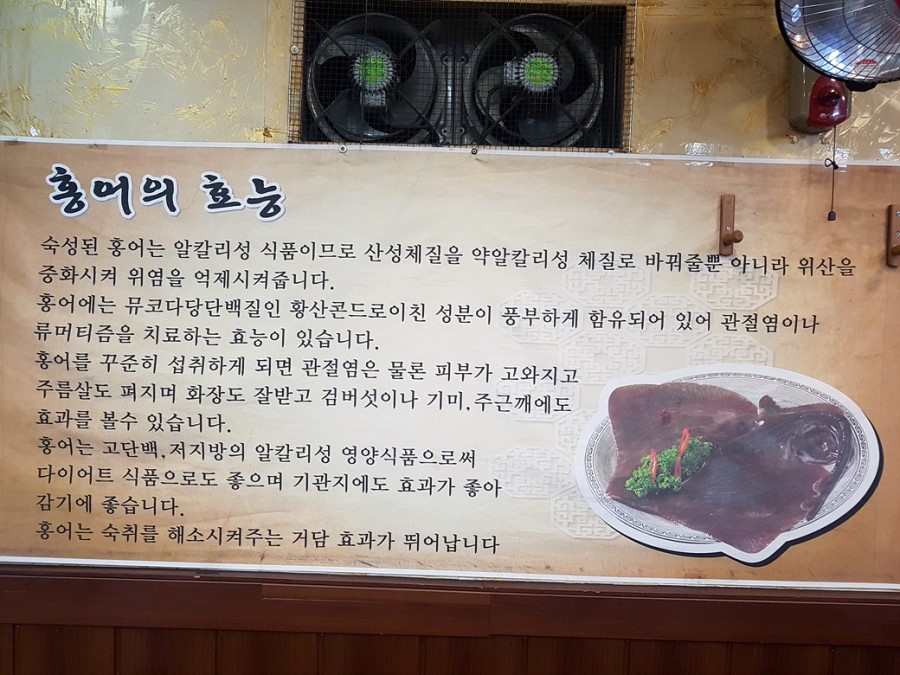 홍어의 효능
숙성된 홍어는 알칼리성 식품이므로 산성체질을 약알칼리성 체질로 바꿔줄뿐 아니라 위산을
중화시켜 위염을 억제시켜줍니다.
홍어에는 뮤코다당단백질인 황산콘드로이친 성분이 풍부하게 함유되어 있어 관절염이나
류머티즘을 치료하는 효능이 있습니다.
홍어를 꾸준히 섭취하게 되면 관절염은 물론 피부가 고와지고
주름살도 펴지며 화장도 잘받고 검버섯이나 기미,주근깨에도
효과를 볼수 있습니다.
홍어는 고단백,저지방의 알칼리성 영양식품으로써
다이어트 식품으로도 좋으며 기관지에도 효과가 좋아
감기에 좋습니다.
홍어는 숙취를 해소시켜주는 거담 효과가 뛰어납니다